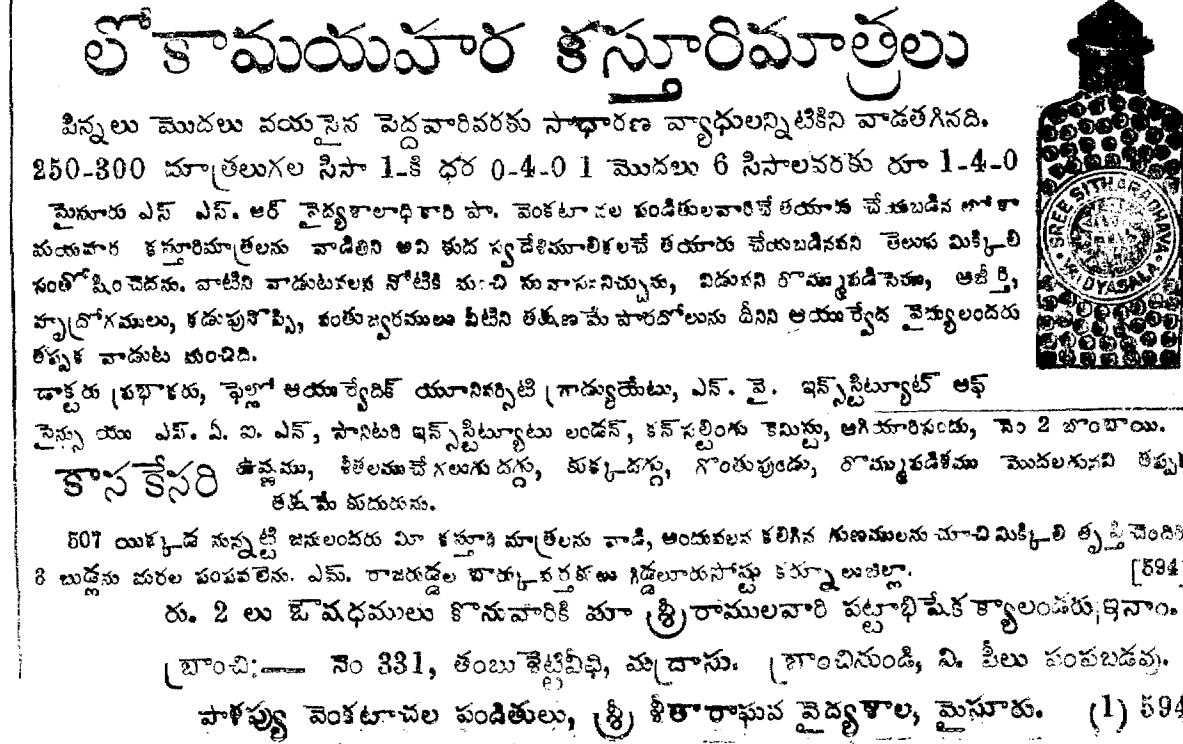 లోకామయహర కస్తూరిమాత్రలు
పిన్నలు మొదలు వయసైన పెద్దవారివరకు సాధారణ వ్యాధులన్నిటికిని వాడతగినది.
250-300 మాత్రలుగల సీసా 1-కి ధర 0-4-0 1 మొదలు 6 సీసాలవరకు రూ 1-4-0
SREE SITHARAGHAVA VYDYASALA
మైసూరు ఎస్ ఎస్. ఆర్ వైద్యశాలాధికారి పా. వెంకటాచల పండితులవారిచే తయారు చేయబడిన లోకా
మయహర కస్తూరిమాత్రలను వాడితిని అవి శుద్ధ స్వదేశిమూలికలచే తయారు చేయబడినవని తెలుప మిక్కిలి
సంతోషించెదను. వాటిని వాడుటవలన నోటికి మంచి సువాసననిచ్చును, విడువని రొమ్ముపడిసెము, అజీర్తి,
హృద్రోగములు, కడుపునొప్పి, వంతుజ్వరములు వీటిని తక్షణమే పారదోలును దీనిని ఆయుర్వేద వైద్యులందరు
తప్పక వాడుట మంచిది.
డాక్టరు ప్రభాకరు, ఫెల్లో ఆయుర్వేదిక్ యూనివర్సిటి గ్రాడ్యుయేటు, ఎన్. వై. ఇన్స్‌స్టిట్యూట్ ఆఫ్
సైన్సు యు ఎస్. ఏ. ఐ. ఎన్, సానిటరి ఇన్స్‌స్టిట్యూటు లండన్, కన్‌సల్టింగు కెమిస్టు, అగియారిసందు, నెం 2 బొంబాయి.
కాసకేసరి ఉష్ణము, శీతలముచే గలుగుదగ్గు, కుక్కదగ్గు, గొంతుపుండు, రొమ్ముపడిశము మొదలగునవి తప్పక
తక్షణమే కుదురును.
507 యిక్కడ నున్నట్టి జనులందరు మీ కస్తూరి మాత్రలను వాడి, అందువలన కలిగిన గుణములను చూచి మిక్కిలి తృప్తి చెందిరి
బుడ్లను మరల పంపవలెను. ఎమ్. రాజరుడ్డల బార్కువర్తకులు గిడ్డలూరుపోస్టు కర్నూలుజిల్లా. [594
రు. 2 లు ఔషధములు కొనువారికి మా శ్రీరాములవారి పట్టాభిషేక క్యాలండరు ఇనాం.
బ్రాంచి:— నెం 331, తంబుశెట్టివీధి, మద్రాసు. బ్రాంచినుండి, వి. పీలు పంపబడవు.
పాళప్య వెంకటాచల పండితులు, శ్రీ శీతారాఘవ వైద్యశాల, మైసూరు. (1) 594